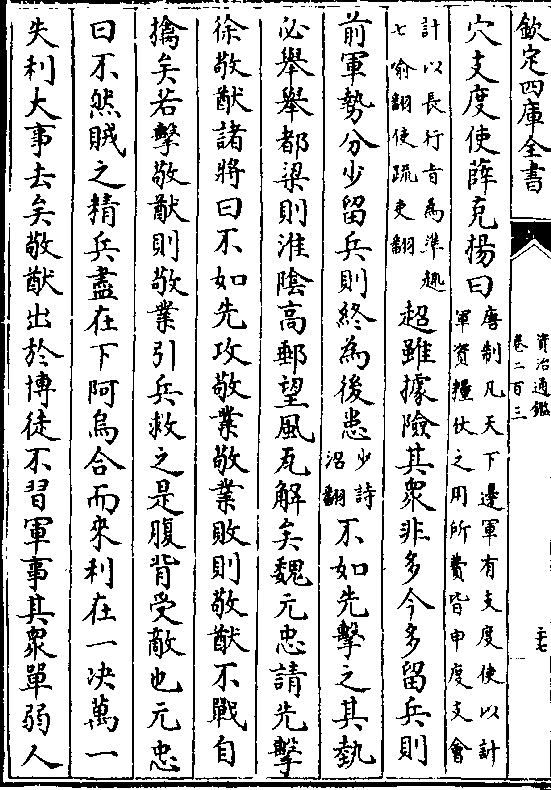 欽定四庫全書
資治通鑑
卷二百三
三十七
穴支度使薛克楊曰唐制凡天下邊軍有支度使以計
軍資糧仗之用所費皆申度支會
計以長行旨為準趣
七喻翻使疏吏翻超雖據險其衆非多今多留兵則
前軍勢分少留兵則終為後患少詩
沼翻不如先擊之其埶
必舉舉都梁則淮陰高郵望風瓦解矣魏元忠請先擊
徐敬猷諸將曰不如先攻敬業敬業敗則敬猷不戰自
擒矣若擊敬猷則敬業引兵救之是腹背受敵也元忠
曰不然賊之精兵盡在下阿烏合而來利在一决萬一
失利大事去矣敬猷出於博徒不習軍事其衆單弱人